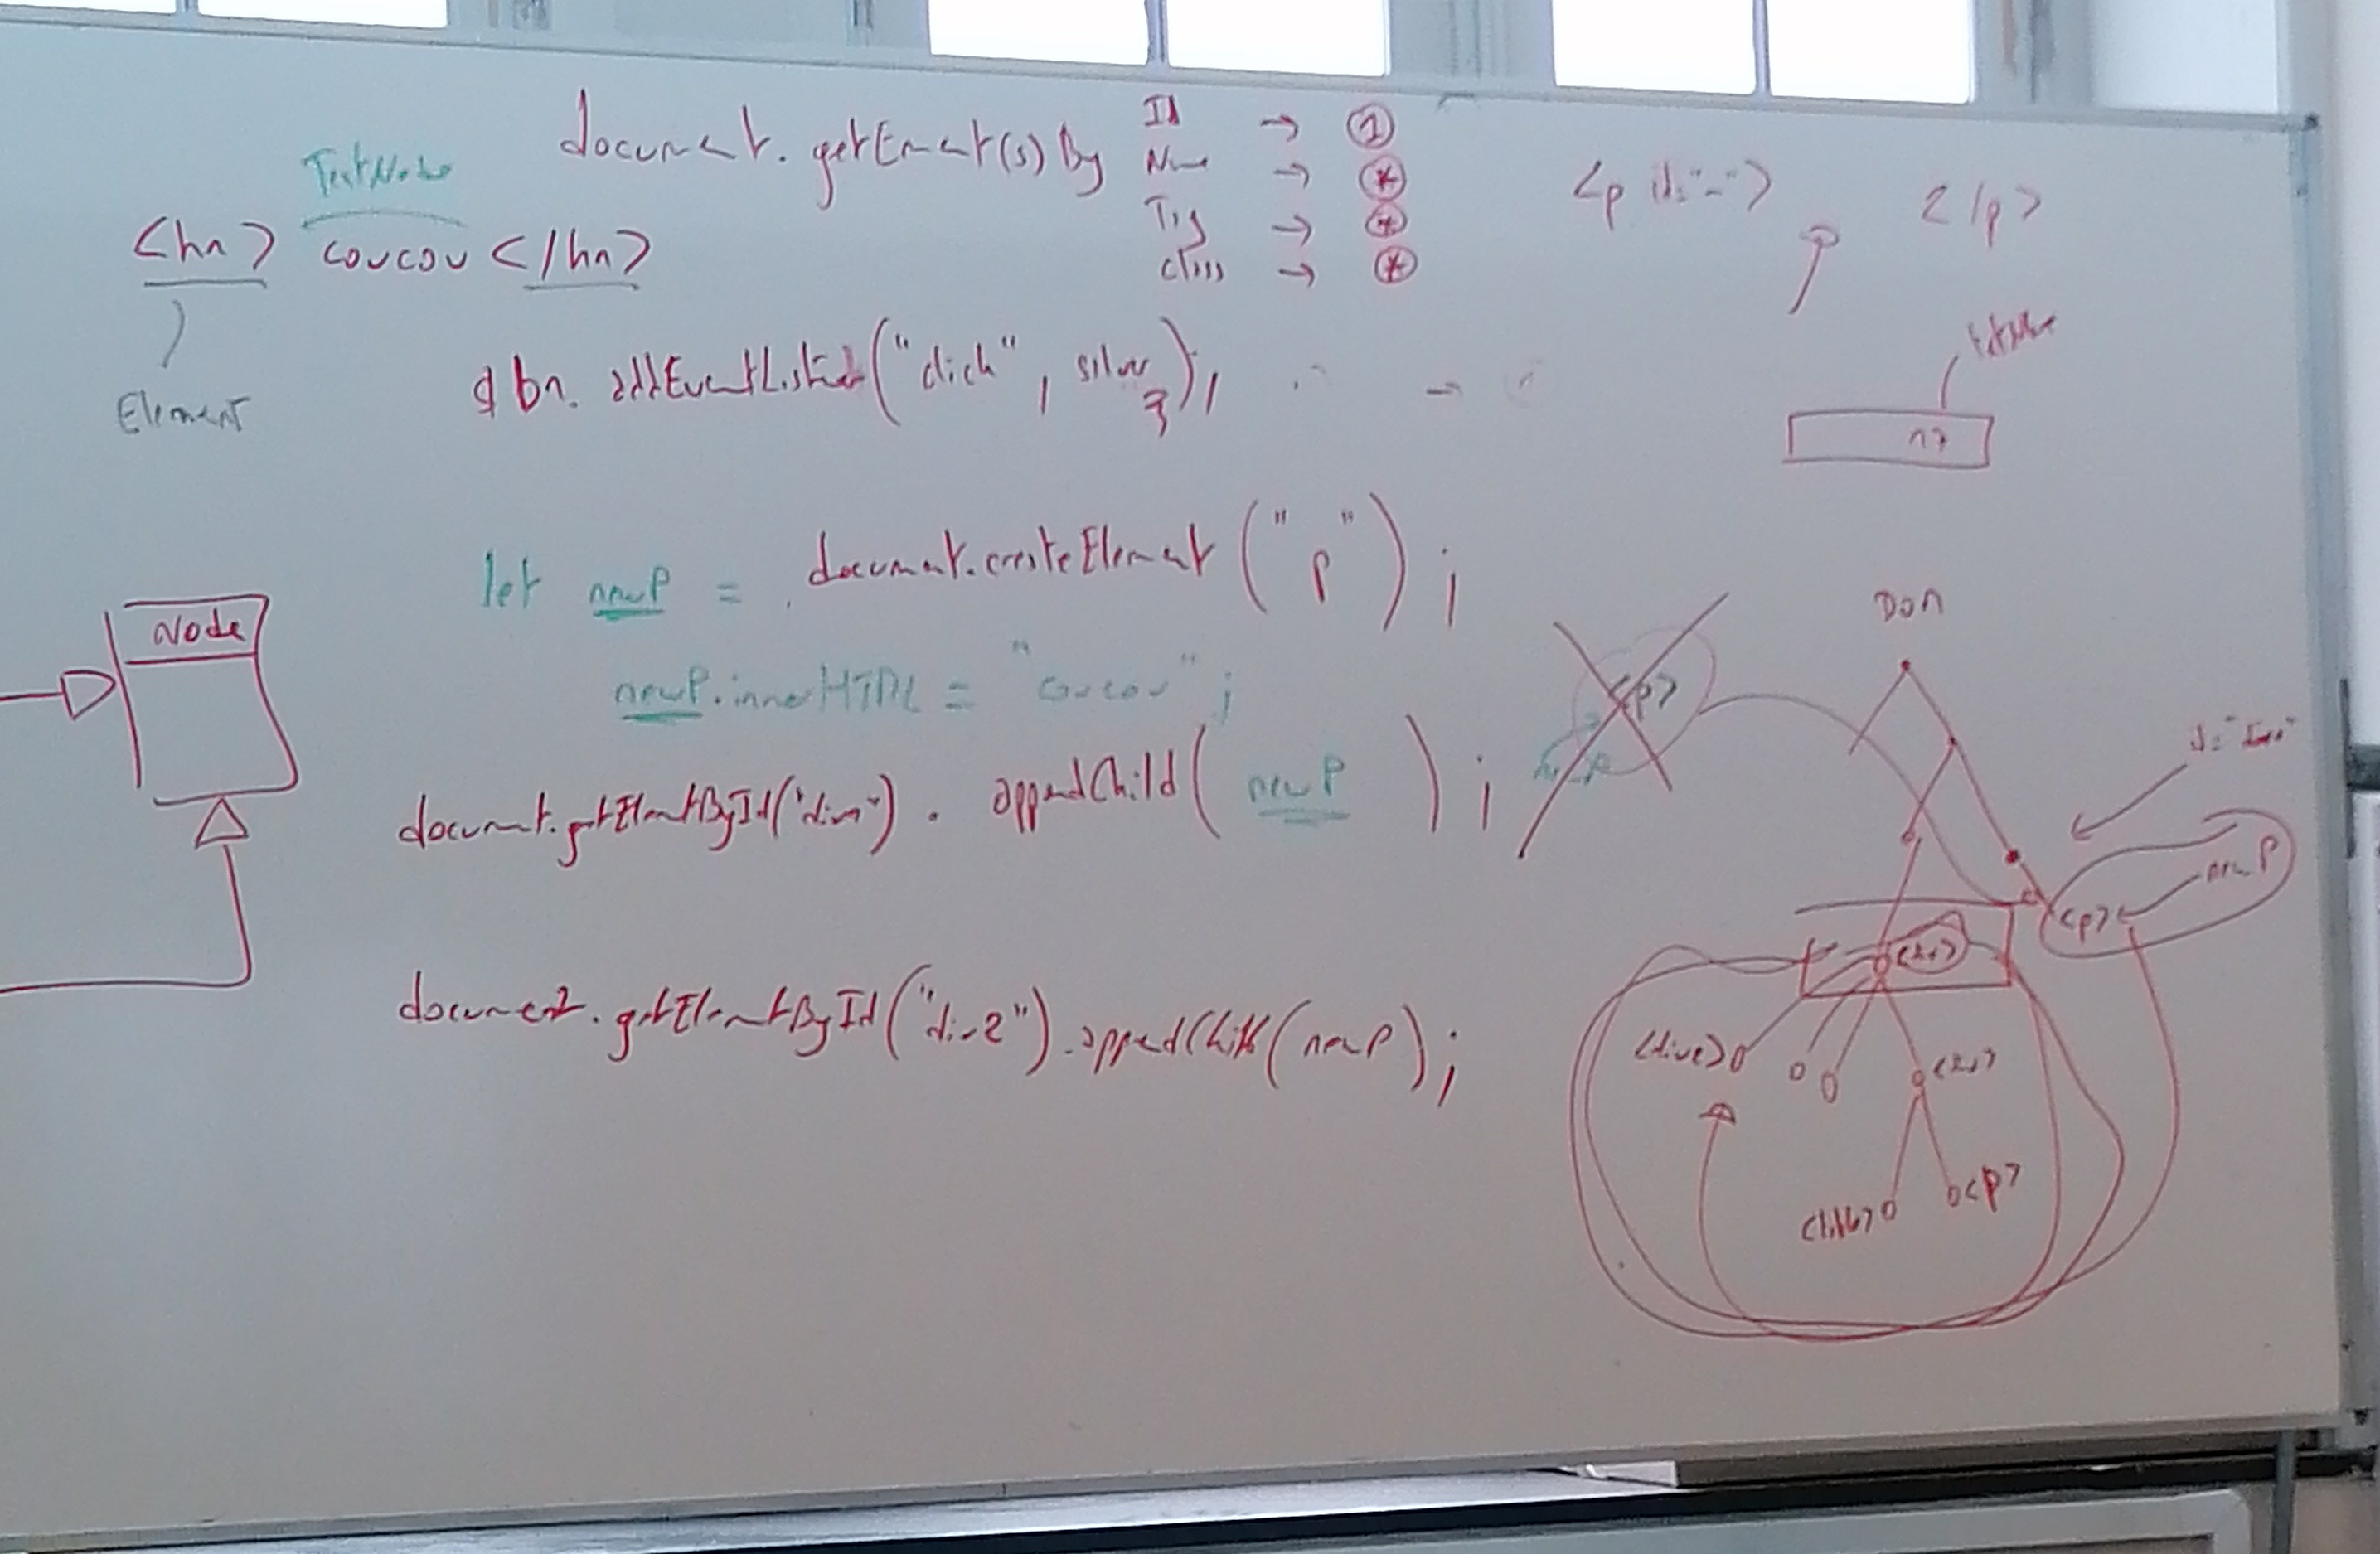 document.getEment(s) By
Id → 1
Name → *
Tag → *
class → *
TextNode
<hn> coucou </hn>
Element
<p id="-">
</p>
btn. addEventListener("click", silver);
textNode
let newP = document.createElement("p");
newP.innerHTML = "coucou";
document.getElementById("div1"). appendChild(newP);
document.getElementById("div2").appendChild(newP);
Node
<p>
DOM
<p>
newP
<div2>
<p>